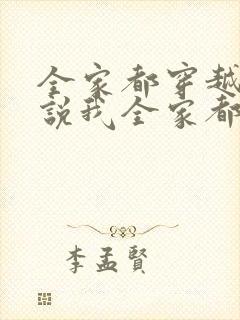 全家都穿越
說我全家都
李孟賢